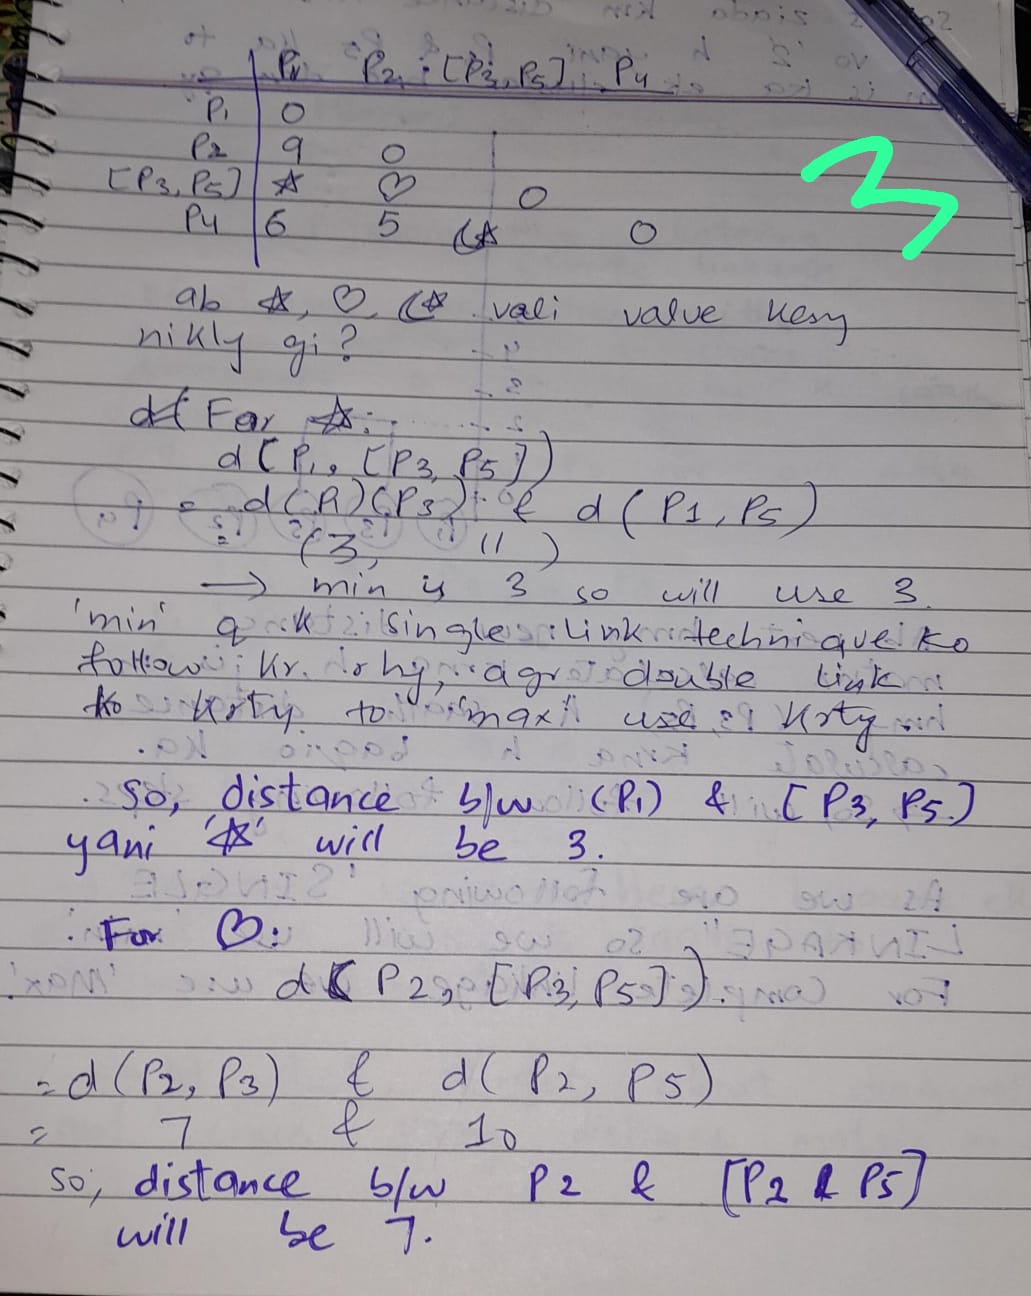 P1 P2 [P3, P5] P4
P1 0
P2 9 0
[P3, P5] ☆ ♡ 0
P4 6 5 (☆ 0
3
ab ☆, ♡, (☆ vali value kesy
nikly gi?
For ☆:
d(P1, [P3, P5])
= d(P1)(P3) & d(P1, P5)
= (3, 11)
→ min is 3 so will use 3.
'min' q k single link technique ko
follow kr rhy, agr double link
ko krty to 'max' use krty
so, distance b/w (P1) & [P3, P5]
yani '☆' will be 3.
For ♡:
d( P2, [P3, P5]).
= d(P2, P3) & d(P2, P5)
= 7 & 10
so, distance b/w P2 & [P2 & P5]
will be 7.